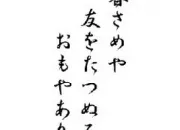 春さめや
友をたつぬる
おもやあり